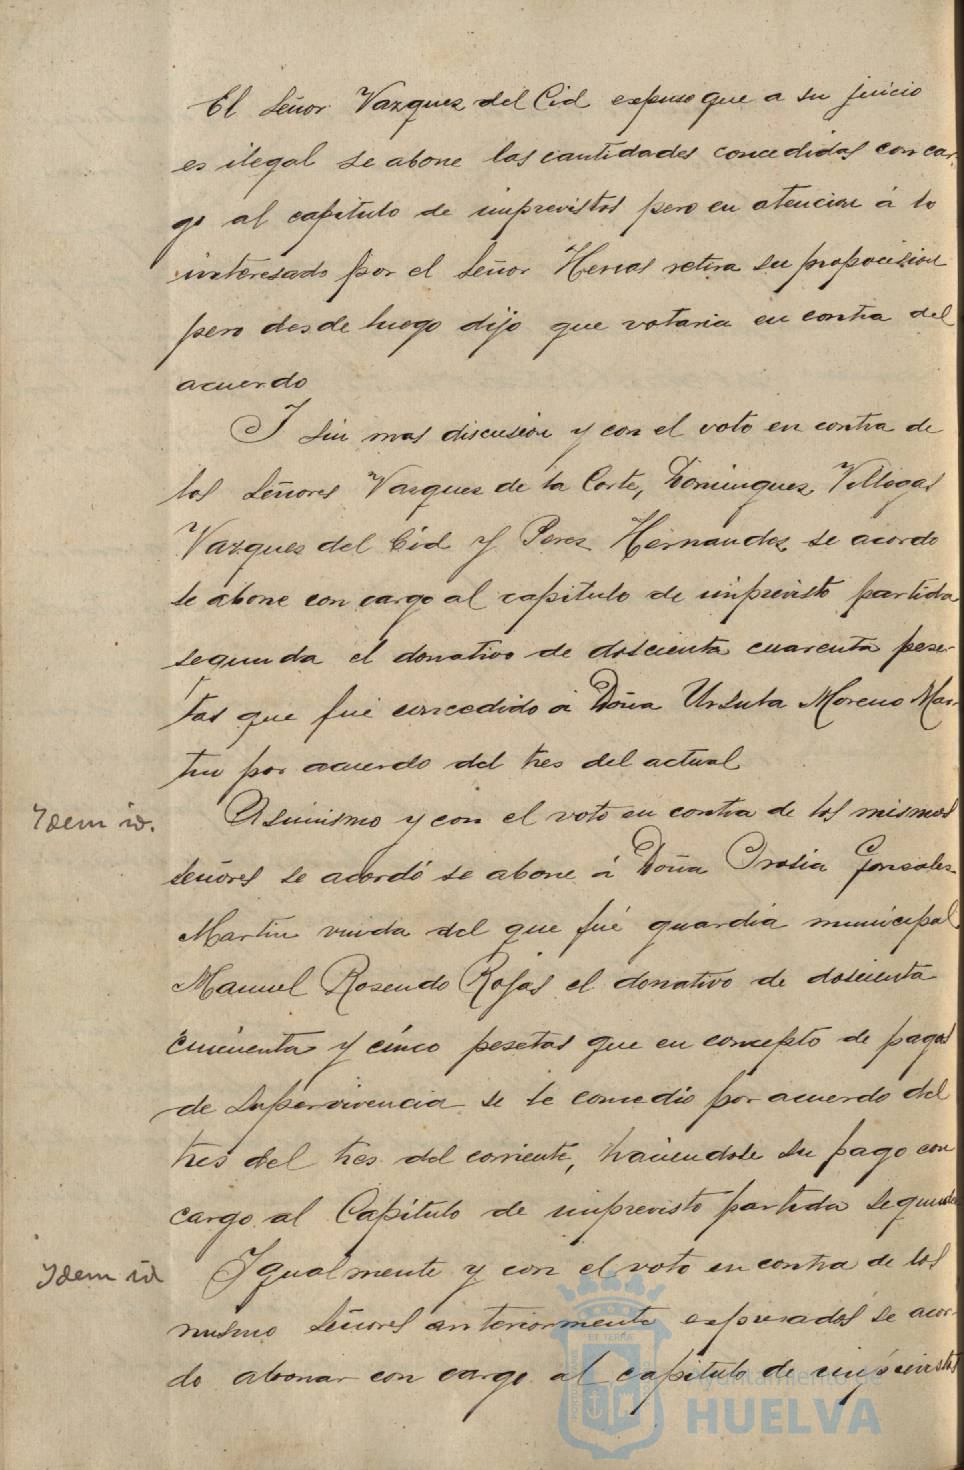 El Señor Vazquez del Cid expuso que a su juicio
es ilegal se abone las cantidades concedidas con car-
go al capitulo de imprevistos pero en atencion á lo
interesado por el Señor Hervas retira su proposision
pero desde luego dijo que votaria en contra del
acuerdo
Y sin mas discusion y con el voto en contra de
los Señores Vazquez de la Corte, Dominguez, Villegas
Vazquez del Cid y Perez Hernandez, se acordo
se abone con cargo al capitulo de imprevisto partida
segunda el donativo de doscienta cuarenta pese-
tas que fué concedido á Doña Ursula Moreno Mar-
tin por acuerdo del tres del actual
Idem id.
Asimismo y con el voto en contra de los mismos
Señores se acordó se abone á Doña Orosia Gonzalez
Martin viuda del que fué guardia municipal
Manuel Rosendo Rojas el donativo de doscienta
cincuenta y cinco pesetas que en concepto de pagas
de supervivencia se le concedio por acuerdo del
tres del tres del corriente, haciendose su pago con
cargo al Capitulo de imprevisto partida segunda
Idem id
Igualmente y con el voto en contra de los
mismo Señores anteriormente expresados se acor-
do abonar con cargo al capitulo de imprevistos
Ayuntamiento de
HUELVA